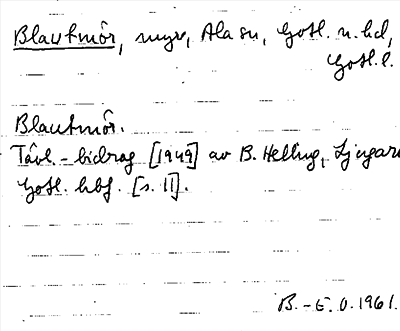 Blautmôr, myr, Ala sn, Gotl. n. hd,
Gotl. l.
Blautmôr.
Tävl.-bidrag [1949] av B. Helling, Ljugarn
Gotl. hbf. [s. 11].
B.-E. O. 1961.